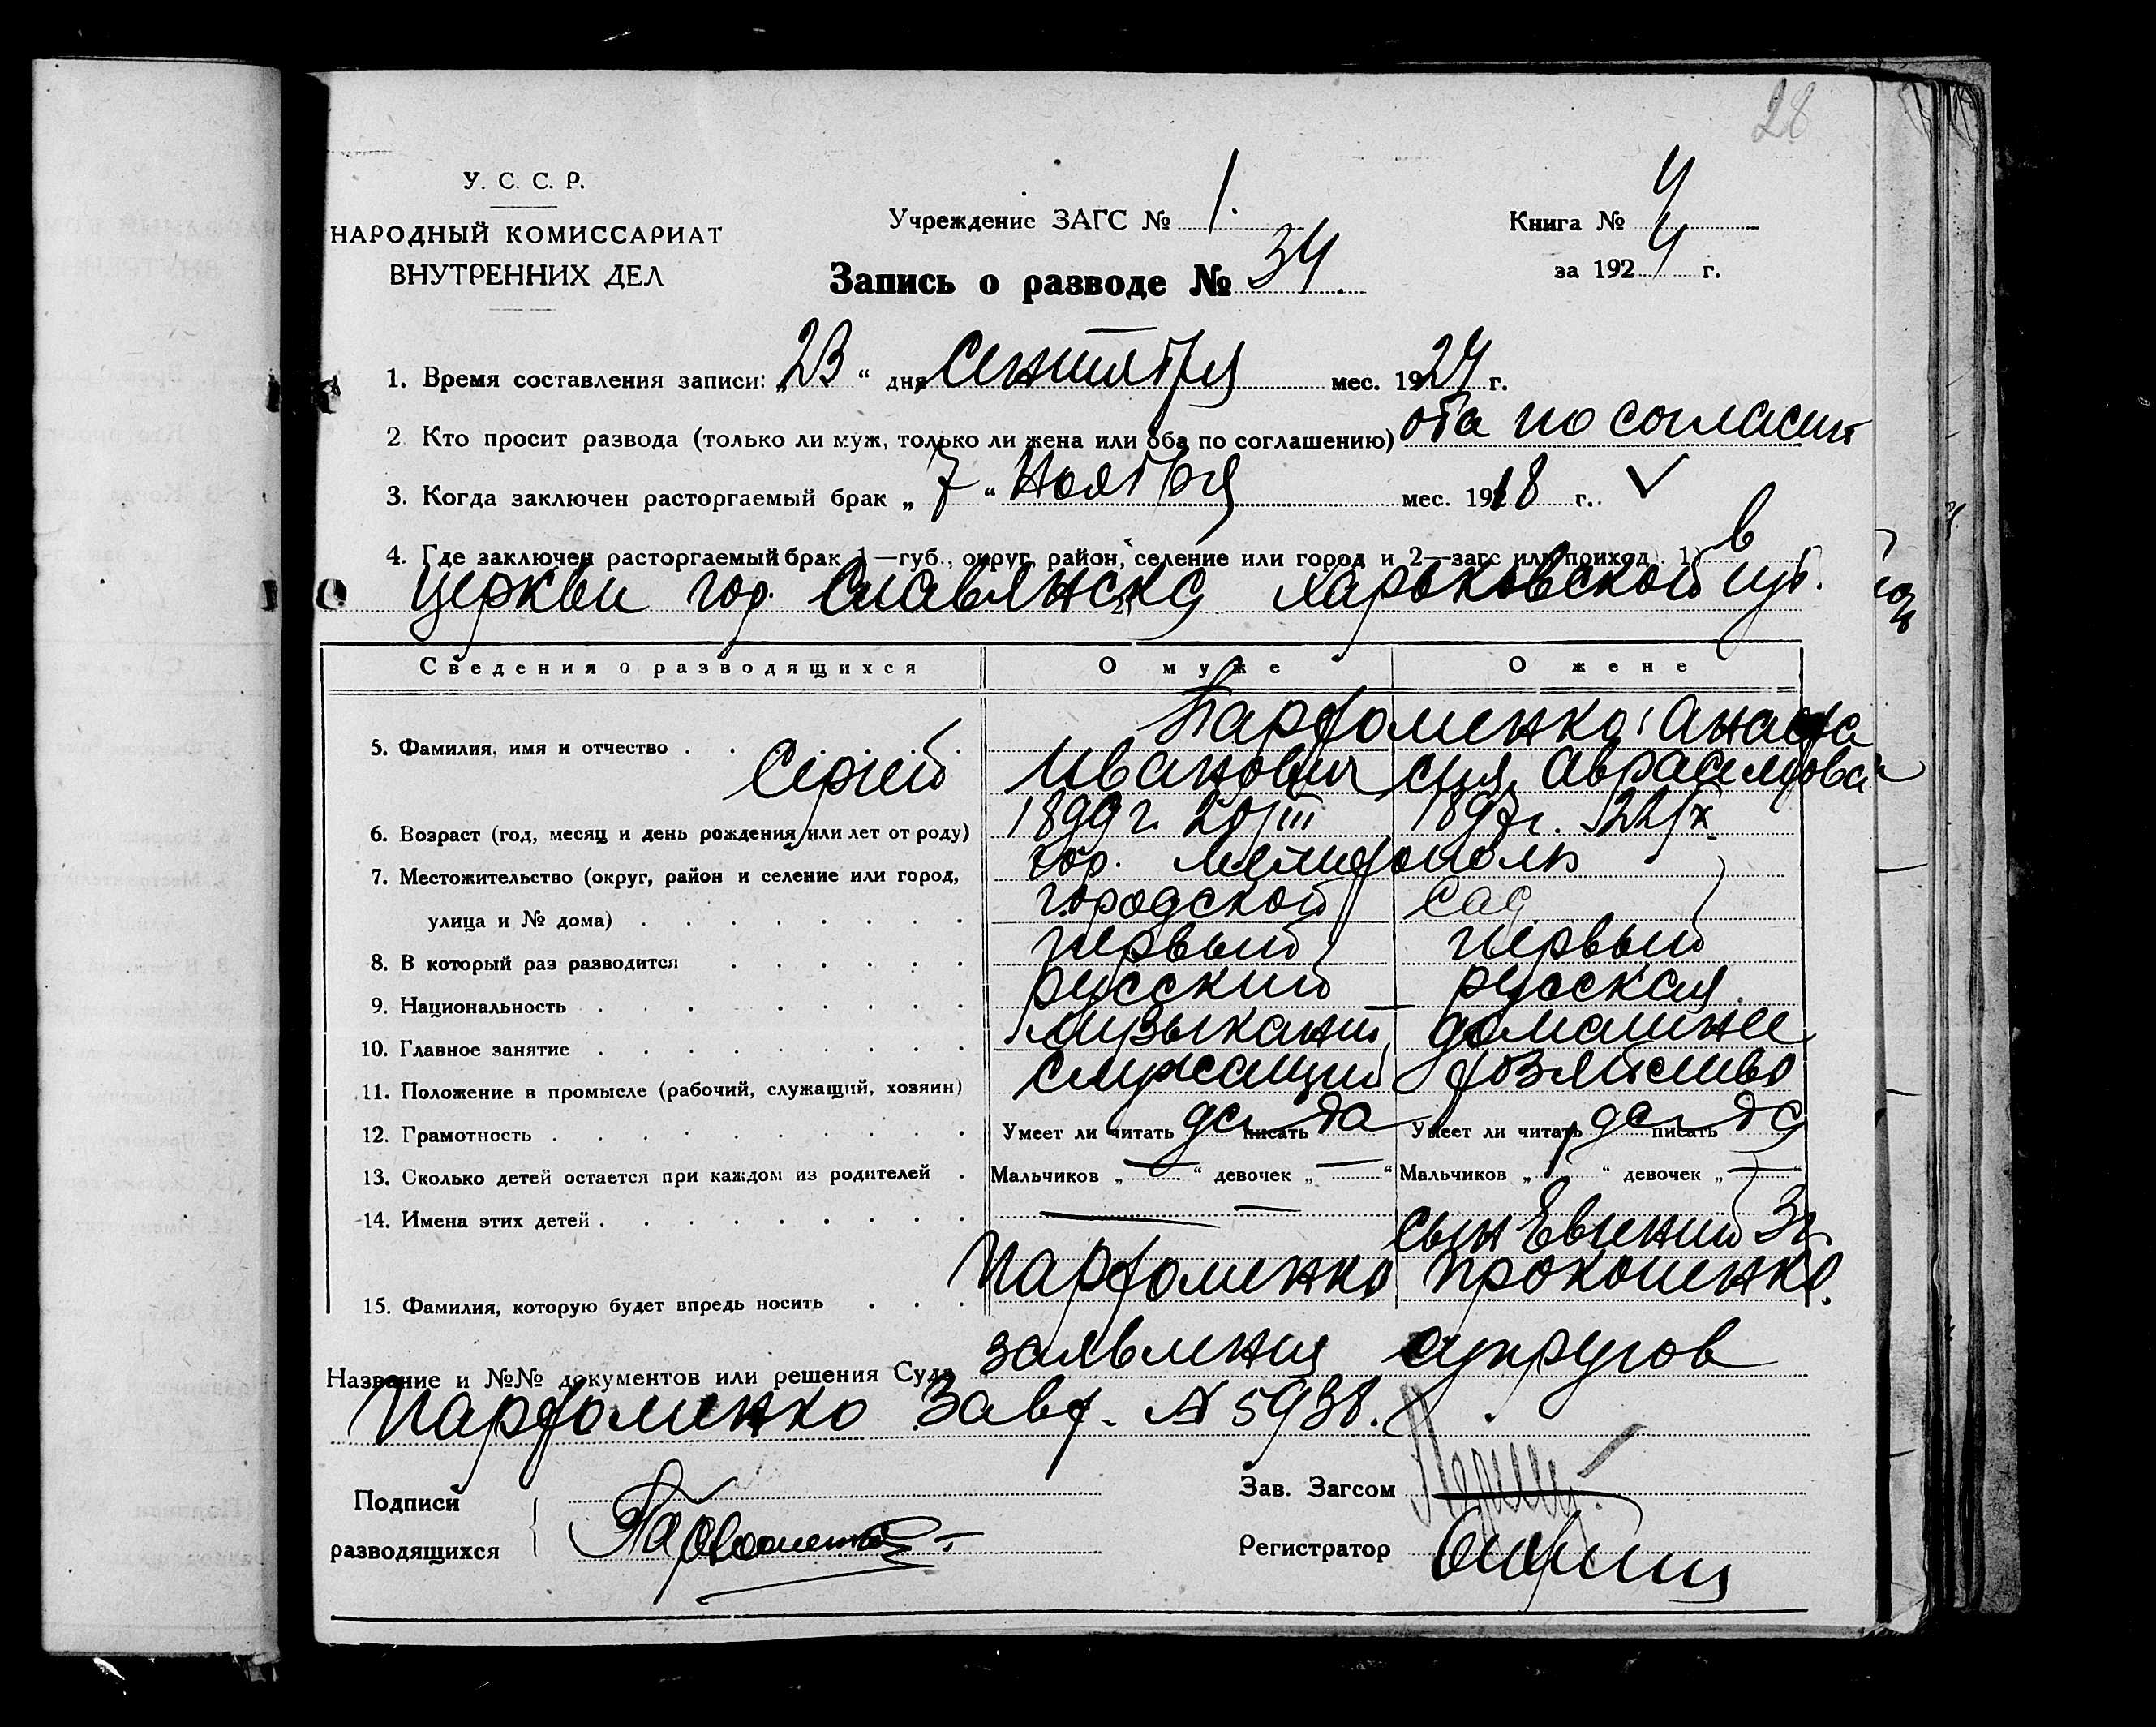 28
У. С. С. Р.
НАРОДНЫЙ КОМИССАРИАТ
ВНУТРЕННИХ ДЕЛ
Учреждение ЗАГС № 1.
Книга № 4
за 1924 г.
Запись о разводе № 34.
1. Время составления записи: „23“ дня Сентября мес. 1924 г.
2 Кто просит развода (только ли муж, только ли жена или оба по соглашению) оба по согласию
3. Когда заключен расторгаемый брак „7“ Ноября мес. 1918 г.
4. Где заключен расторгаемый брак 1—губ., округ, район, селение или город и 2—загс или приход). 1) в
церкви гор. Славянска Харьковской губ.
Сведения о разводящихся О муже О жене
Парфоменко: Анаста
5. Фамилия, имя и отчество . . . . Сергей Иванович сия Аврамовна
6. Возраст (год, месяц и день рождения или лет от роду) 1899 г. 20/III 1897 г. 22/IX
7. Местожительство (округ, район и селение или город, гор. Мелитополь
улица и № дома) . . . . . . . . городской сад
8. В который раз разводится . . . . . . первый первый
9. Национальность . . . . . . . русский русская
10. Главное занятие . . . . . . . . . музыкант, домашнее
11. Положение в промысле (рабочий, служащий, хозяин) служащий хозяйство
12. Грамотность . . . . . . . . . . Умеет ли читать да писать да Умеет ли читать да писать да
13. Сколько детей остается при каждом из родителей . Мальчиков „—“ девочек „—“ Мальчиков „1“ девочек „—“
14. Имена этих детей . . . . . . . . . — — сын Евгений 3 г.
15. Фамилия, которую будет впредь носить . . . Парфоменко Прокопенко.
Название и №№ документов или решения Суда заявления супругов
Парфоменко Завф. № 5938.
Подписи
разводящихся
Парфоменко
Зав. Загсом
Регистратор